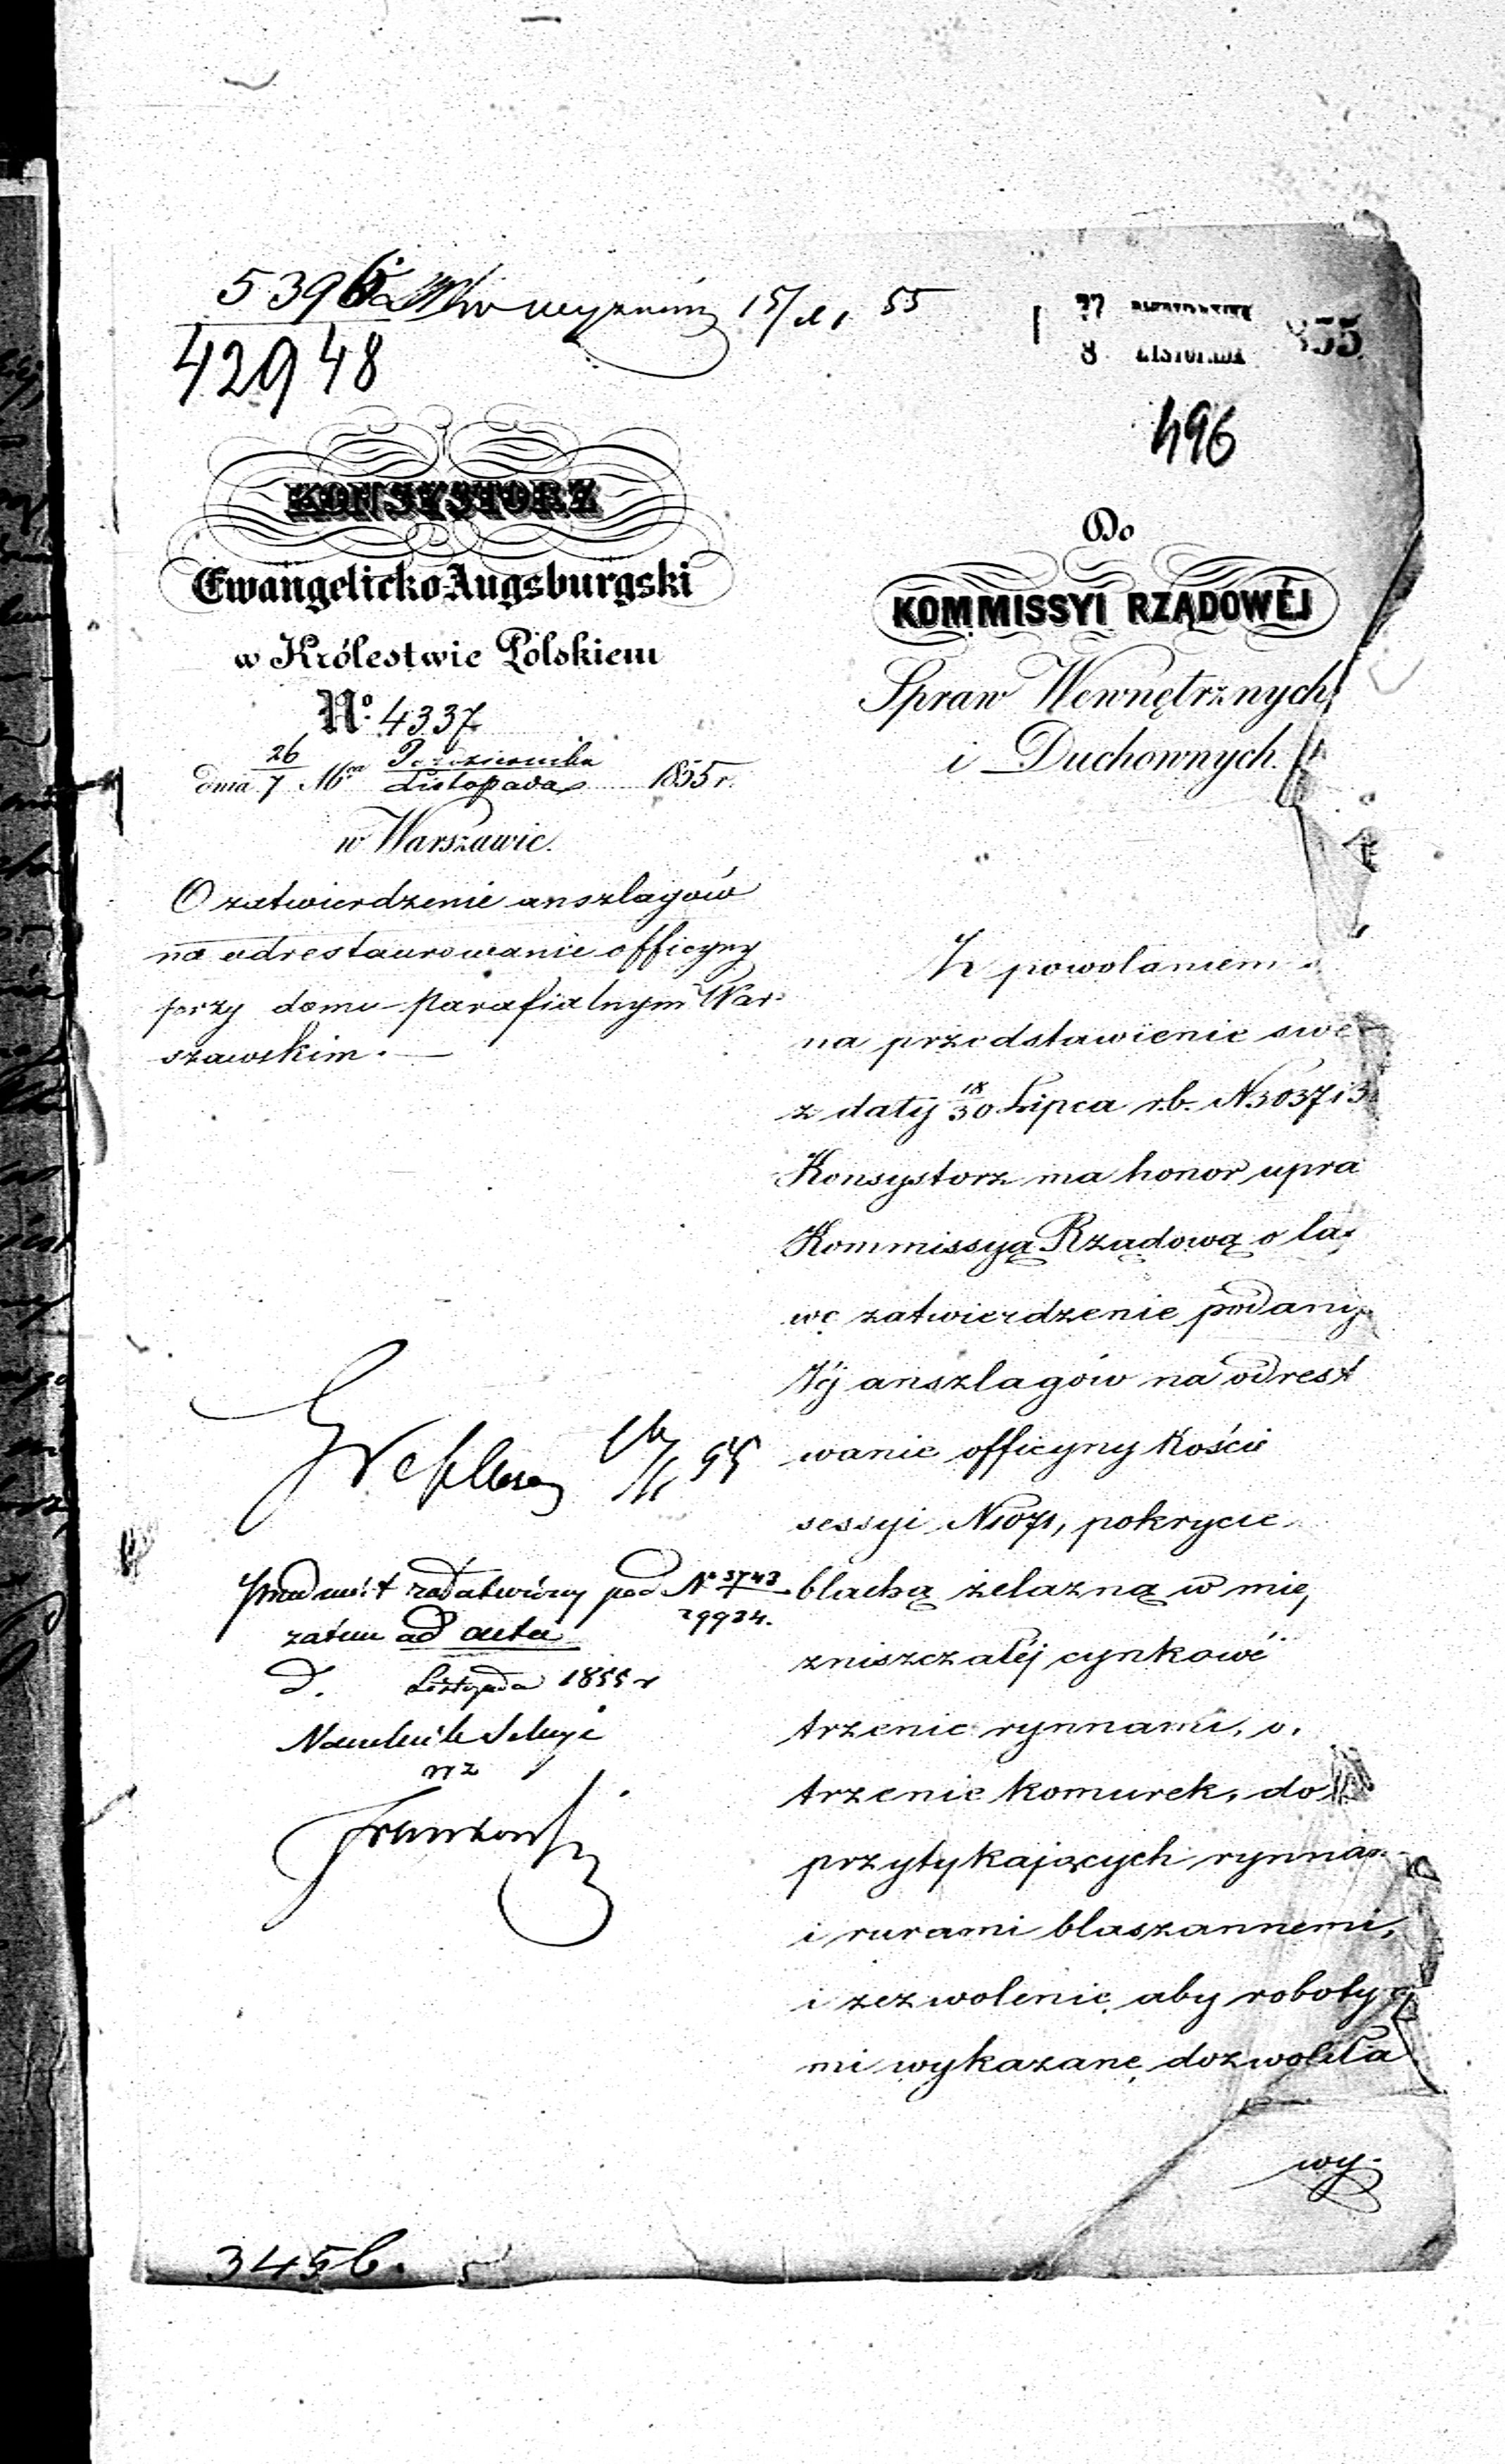 5396
42948
15/XI 55
27 PAŹDZIERNIKA
8 LISTOPADA 855
496
KONSYSTORZ
Ewangelicko Augsburgski
w Królestwie Polskiem
No. 4337
dnia 26/7 Mca Października/Listopada 1855 r.
w Warszawie.
O zatwierdzenie anszlagów
na odrestaurowanie officyny
przy domu Parafialnym War-
szawskim. —
Do
KOMMISSYI RZĄDOWÉJ
Spraw Wewnętrznych
i Duchownych.
Z powołaniem
na przedstawienie swe
z daty 18/30 Lipca r.b. N 3037 i 3
Konsystorz ma honor upra
Kommissyą Rządową o ła
we zatwierdzenie podany
téj anszlagów na odrest
wanie officyny Kości
sessyi N 1071, pokrycie
blachą żelazną w mie
zniszczałéj cynkowé
trzenie rynnami, o
trzenie komurek, do
przytykających rynna
i rurami blaszannemi,
i zezwolenie, aby roboty
mi wykazane, dozwoliła
wy-
55
Przedmiot załatwiony pod No 3743/29934.
zatém ad acta
d. Listopada 1855 r
Naczelnik Sekcyi
wz
3456.